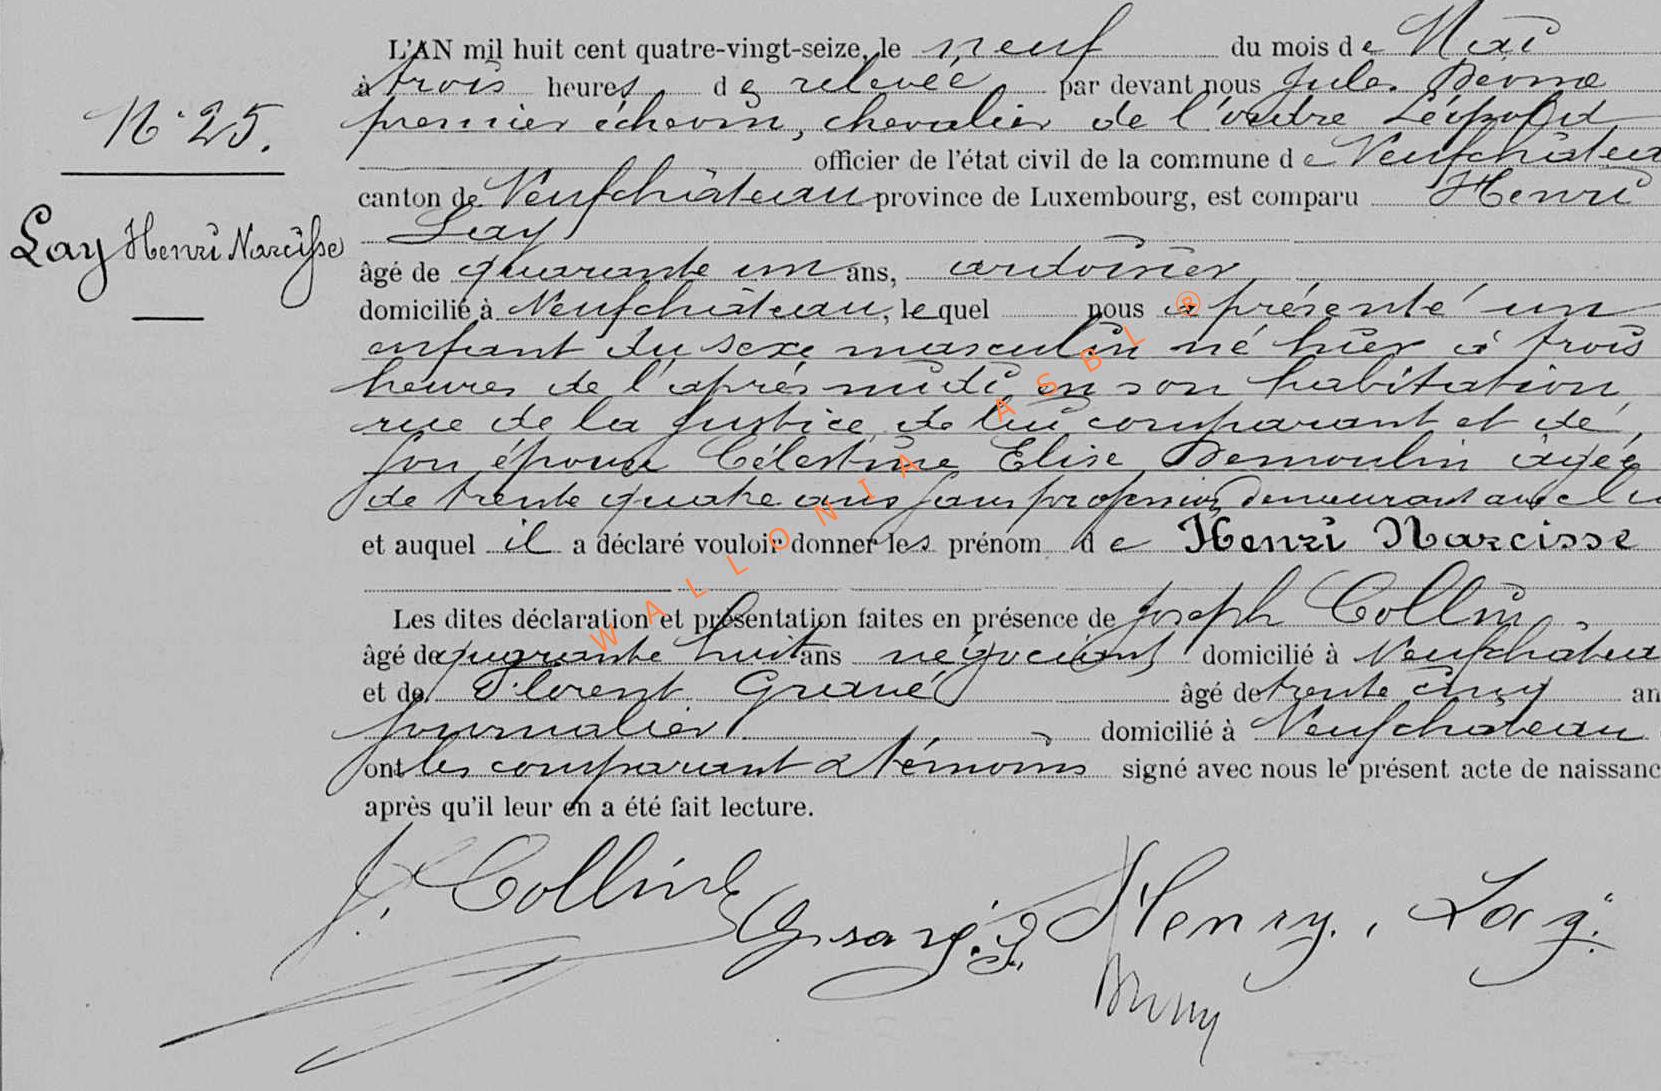 N° 25.
Lay Henri Narcisse
L'AN mil huit cent quatre-vingt-seize, le neuf du mois de Mai
à trois heures de relevée par devant nous Jules
premier échevin, chevalier de l'ordre Léopold
officier de l'état civil de la commune de Neufchâteau
canton de Neufchâteau province de Luxembourg, est comparu Henri
Lay
âgé de quarante un ans, cordonnier
domicilié à Neufchâteau, lequel nous a présenté un
enfant du sexe masculin né hier à trois
heures de l'après midi en son habitation
rue de la Justice de lui comparant et de
son épouse Célestine Elise Demoulin âgée
de trente quatre ans sans profession demeurant avec lui
et auquel il a déclaré vouloir donner les prénom de Henri Narcisse
Les dites déclaration et présentation faites en présence de Joseph Collin
âgé de quarante huit ans négociant domicilié à Neufchâteau
et de Florent âgé de trente cinq an
journalier domicilié à Neufchâteau
ont les comparant & témoins signé avec nous le présent acte de naissanc
après qu'il leur en a été fait lecture.
J. Collin
Henry. Lay.
WALLONIA ASBL ®